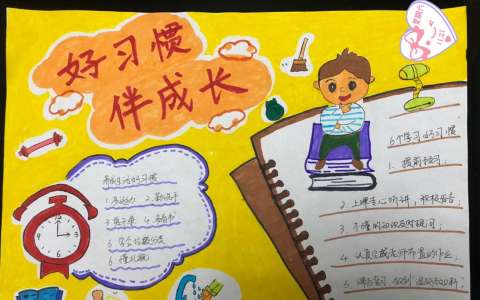 好习惯
伴成长
养成生活好习惯
1.多运动
2.勤洗手
3.爱干净
4.多看书
5.学会垃圾分类
6.懂礼貌
6个学习好习惯
1.提前预习;
2.上课专心听讲,积极发言;
3.不懂的知识及时提问;
4.认真完成老师布置的作业;
5.课后复习,做到